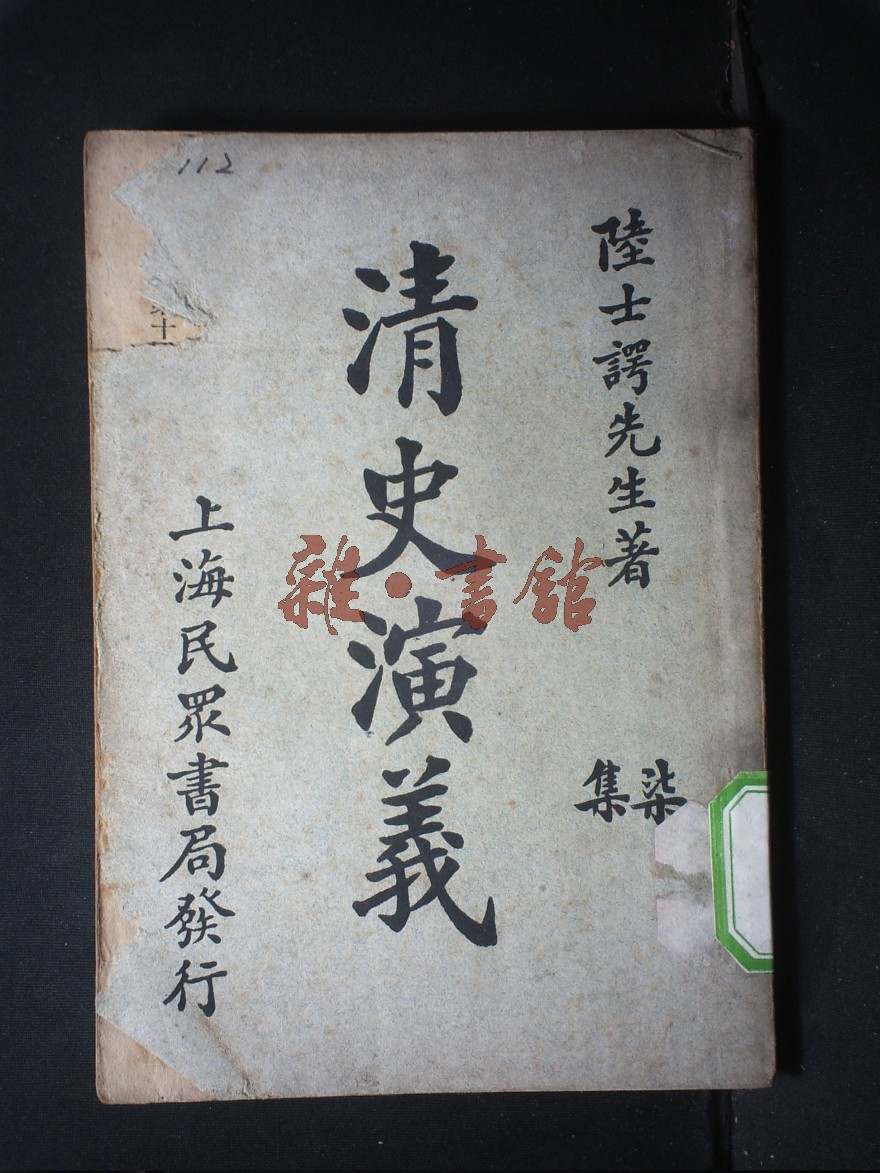 112
陸士諤先生著
柒集
清史演義
上海民眾書局發行
十
雜·書館